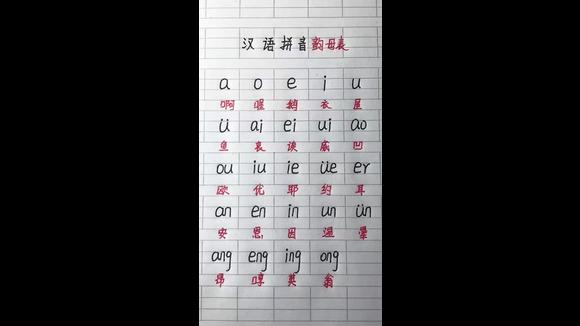 汉语拼音韵母表
a o e i u
啊 喔 鹅 衣 屋
ü ai ei ui ao
鱼 哀 诶 威 凹
ou iu ie üe er
欧 优 耶 约 耳
an en in un ün
安 恩 因 温 晕
ang eng ing ong
昂 哼 英 翁